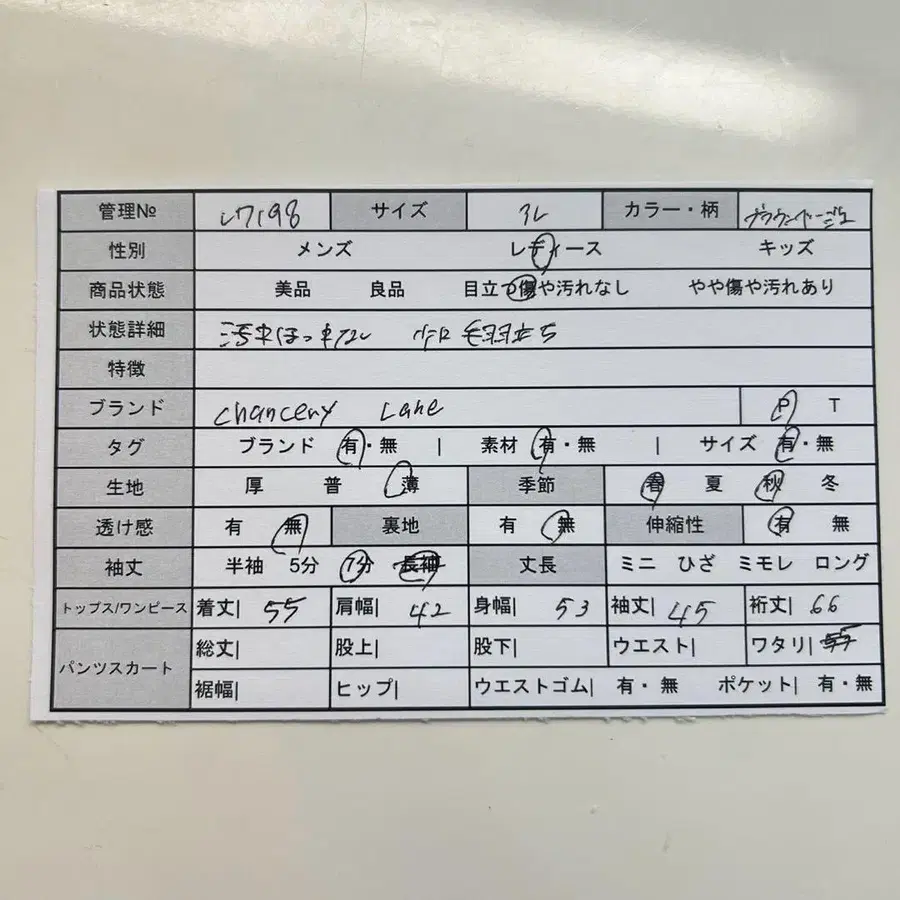 管理№ L7198 サイズ 3L カラー・柄
性別 メンズ レディース キッズ
商品状態 美品 良品 目立つ傷や汚れなし やや傷や汚れあり
状態詳細 汚れほつれなし 少し毛羽立ち
特徴
ブランド chancery Lane P T
タグ ブランド 有・無 | 素材 有・無 | サイズ 有・無
生地 厚 普 薄 季節 春 夏 秋 冬
透け感 有 無 裏地 有 無 伸縮性 有 無
袖丈 半袖 5分 7分 長袖 丈長 ミニ ひざ ミモレ ロング
トップス/ワンピース 着丈| 55 肩幅| 42 身幅| 53 袖丈| 45 裄丈| 66
パンツスカート 総丈| 股上| 股下| ウエスト| ワタリ|
裾幅| ヒップ| ウエストゴム| 有・無 ポケット| 有・無